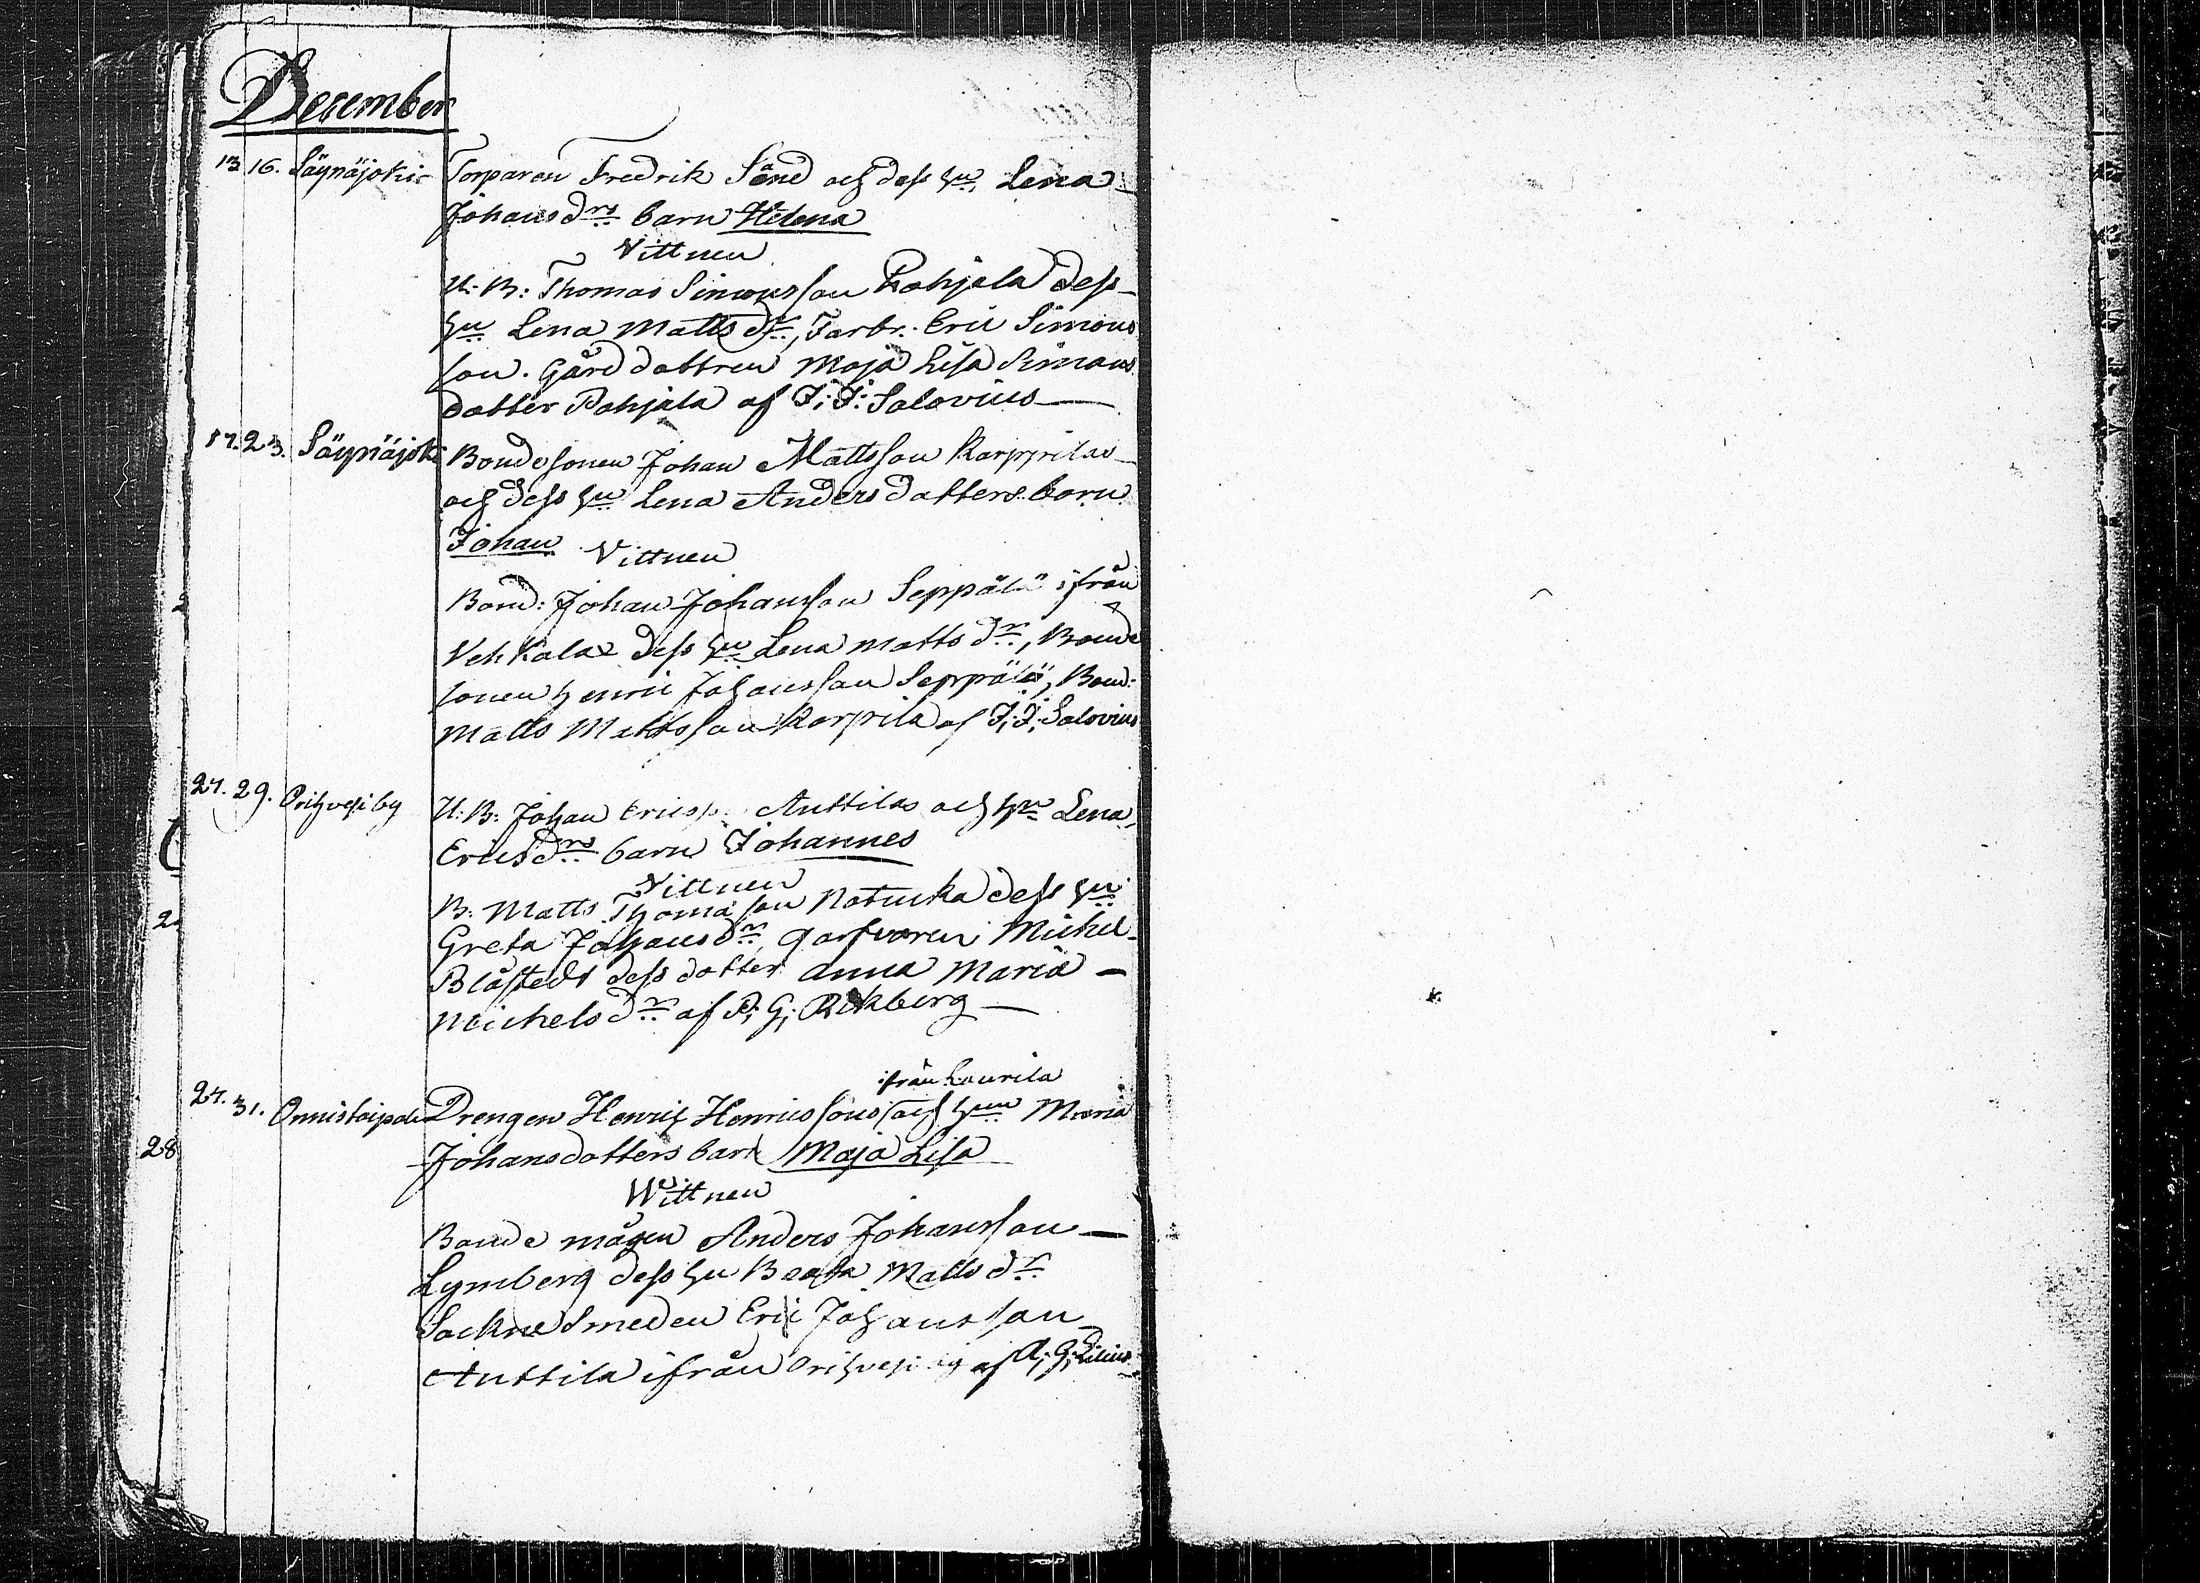 December
13 16. Säynäjoki Torparen Fredrik Sănd och dess hu Lena
Johansdrs barn Helena
Vittnen
U. B: Thomas Simonsson Pohjala dess
hu Lena Matts dr, Farbr. Eric Simons
son. Gård dottren Maja Lisa Simons
dotter Pohjala af J: J: Salovius
17. 23. Säynäjoki Bondesonen Johan Mattsson Karppilas
och dess hu Lena Andersdotters barn
Johan Vittnen
Bond: Johan Johansson Seppälä ifrån
Vehkala dess hu Lena Matts dr, Bonde
sonen Henric Johansson Seppälä, Bond:
Matts Mattsson Karpila af J: J: Salovius
27. 29. Orihvesi by U. B: Johan Ericss. Anttilas och hu Lena
Ericsdrs barn Johannes
Vittnen
B: Matts Thomasson dess hu
Greta Johansdr, garfvaren Michel
Blåstedt dess dotter Anna Maria
Michelsdr af P; G; Rikberg
ifrån Laurila
27. 31. Onnistaipale Drengen Henrih Henricssons och hun Maria
Johansdotters barn Maja Lisa
Wittnen
Bonde mågen Anders Johansson
Lymberg dess hu Beata Matts dr
Sockne Smeden Eric Johansson
Anttila ifrån Orihvesi by af A; G; Lilius
2
2
28